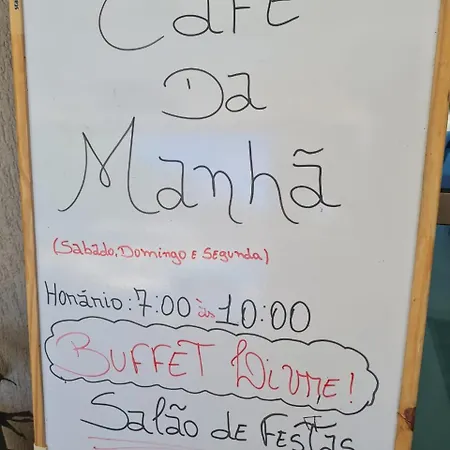 Café
Da
Manhã
(Sabado, Domingo e Segunda)
Horário: 7:00 às 10:00
BUFFET Livre!
Salão de Festas